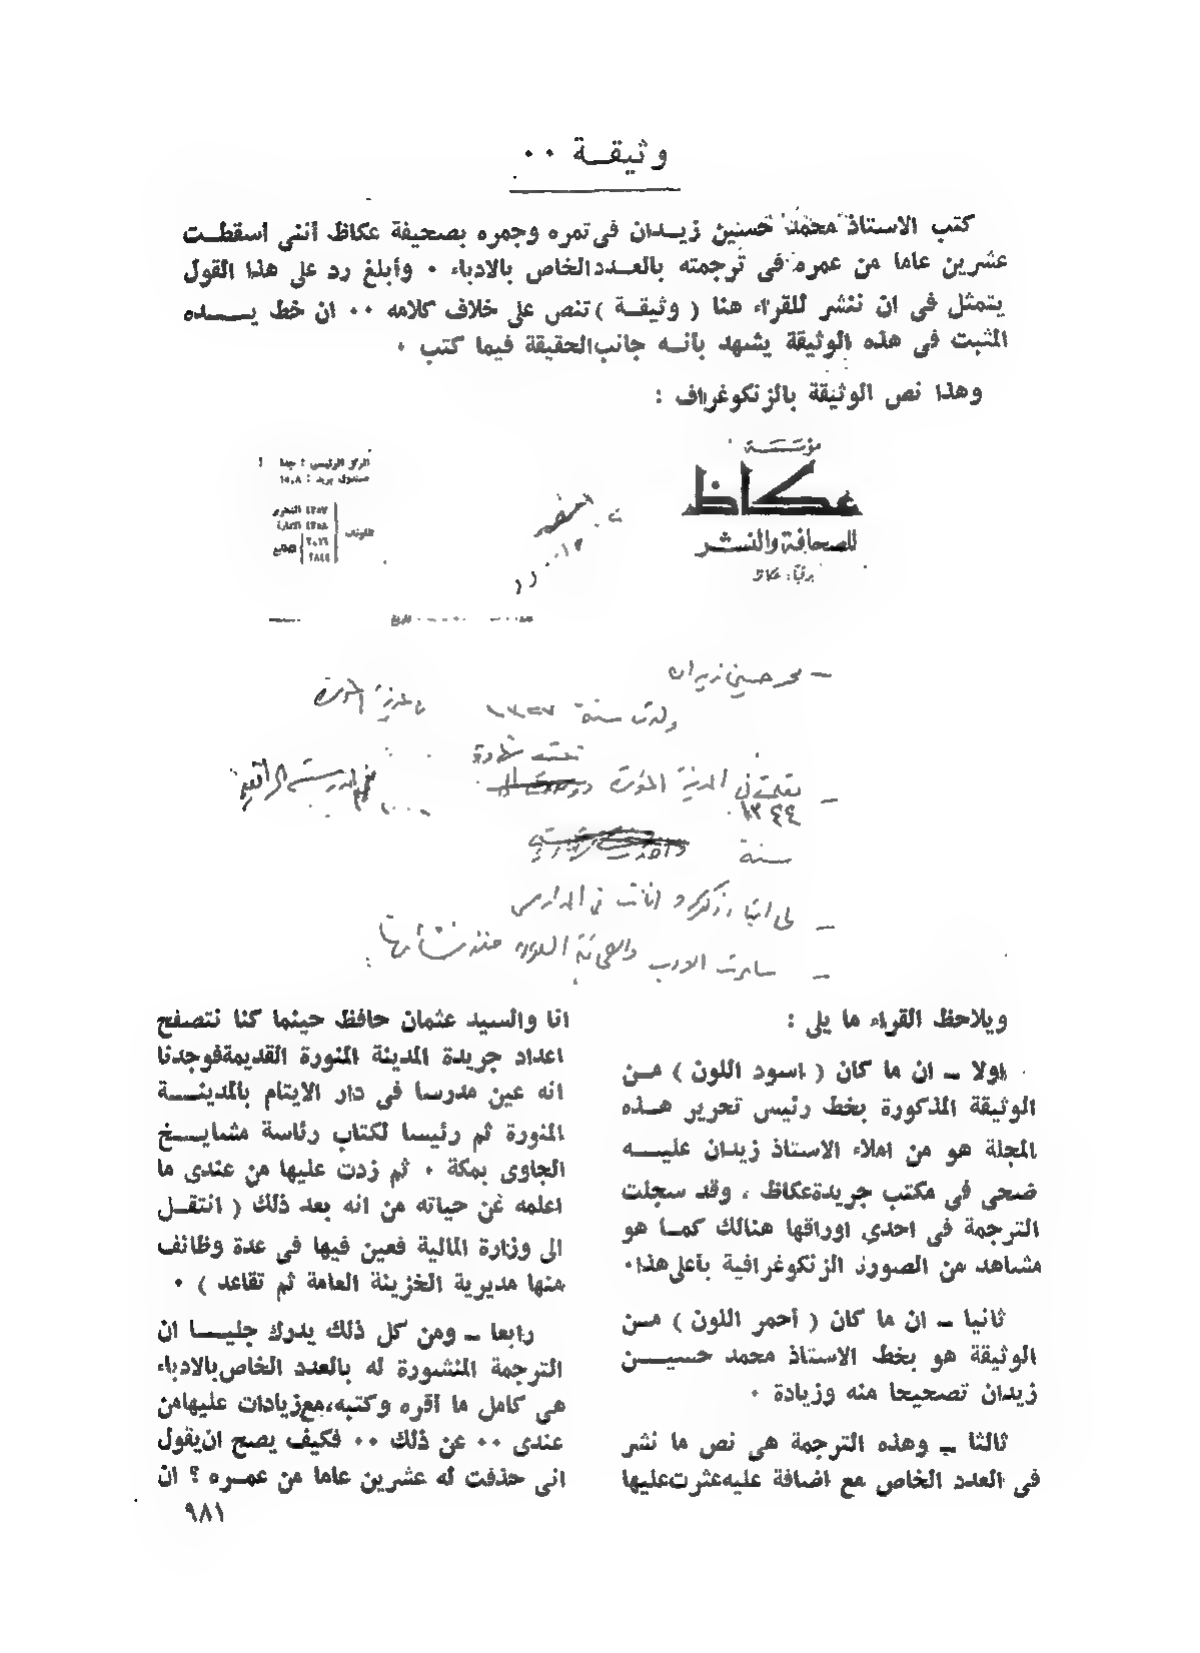 وثيقــة ٠٠
كتب الاستاذ محمد حسنين زيــدان في تمره وجمره بصحيفة عكاظ انني اسقطــت
عشرين عاما من عمره في ترجمته بالعــدد الخاص بالادباء ٠ وأبلغ رد على هذا القول
يتمثل في ان ننشر للقراء هنا ( وثيقــة ) تنص على خلاف كلامه ٠٠ ان خط يـــده
المثبت في هذه الوثيقة يشهد بأنــه جانب الحقيقة فيما كتب ٠
وهذا نص الوثيقة بالزنكوغراف :
مؤسسة
عكاظ
للصحافة والنشر
برقيا : عكاظ
المركز الرئيسي : جدة
صندوق بريد : ١٥٠٨
التحرير
الادارة
ـ محمد حسين زيدان
ولدت سنة ١٣٢٧ بالمدينة المنورة
ـ تعلمت في المدينة المنورة
١٣٤٤
سنة
في المدارس
ـ سايرت الادب
ويلاحظ القراء ما يلي :
اولا ــ ان ما كان ( اسود اللون ) مــن
الوثيقة المذكورة بخط رئيس تحرير هــذه
المجلة هو من املاء الاستاذ زيدان عليــه
ضحى في مكتب جريدة عكاظ ، وقد سجلت
الترجمة في احدى اوراقها هنالك كمــا هو
مشاهد من الصورة الزنكوغرافية بأعلى هذا٠
ثانيا ــ ان ما كان ( أحمر اللون ) مــن
الوثيقة هو بخط الاستاذ محمد حسيــن
زيدان تصحيحا منه وزيادة ٠
ثالثا ــ وهذه الترجمة هي نص ما نشر
في العدد الخاص مع اضافة عليه عثرت عليها
انا والسيد عثمان حافظ حينما كنا نتصفح
اعداد جريدة المدينة المنورة القديمة فوجدنا
انه عين مدرسا في دار الايتام بالمدينــة
المنورة ثم رئيسا لكتاب رئاسة مشايــخ
الجاوى بمكة ٠ ثم زدت عليها من عندى ما
اعلمه عن حياته من انه بعد ذلك ( انتقــل
الى وزارة المالية فعين فيها في عدة وظائف
منها مديرية الخزينة العامة ثم تقاعد ) ٠
رابعا ــ ومن كل ذلك يدرك جليــا ان
الترجمة المنشورة له بالعدد الخاص بالادباء
هي كامل ما أقره وكتبه،مع زيادات عليها من
عندى ٠٠ عن ذلك ٠٠ فكيف يصح ان يقول
اني حذفت له عشرين عاما من عمــره ؟ ان
٩٨١